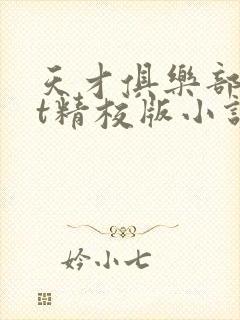 天才俱樂部
t精校版小說
妗小七